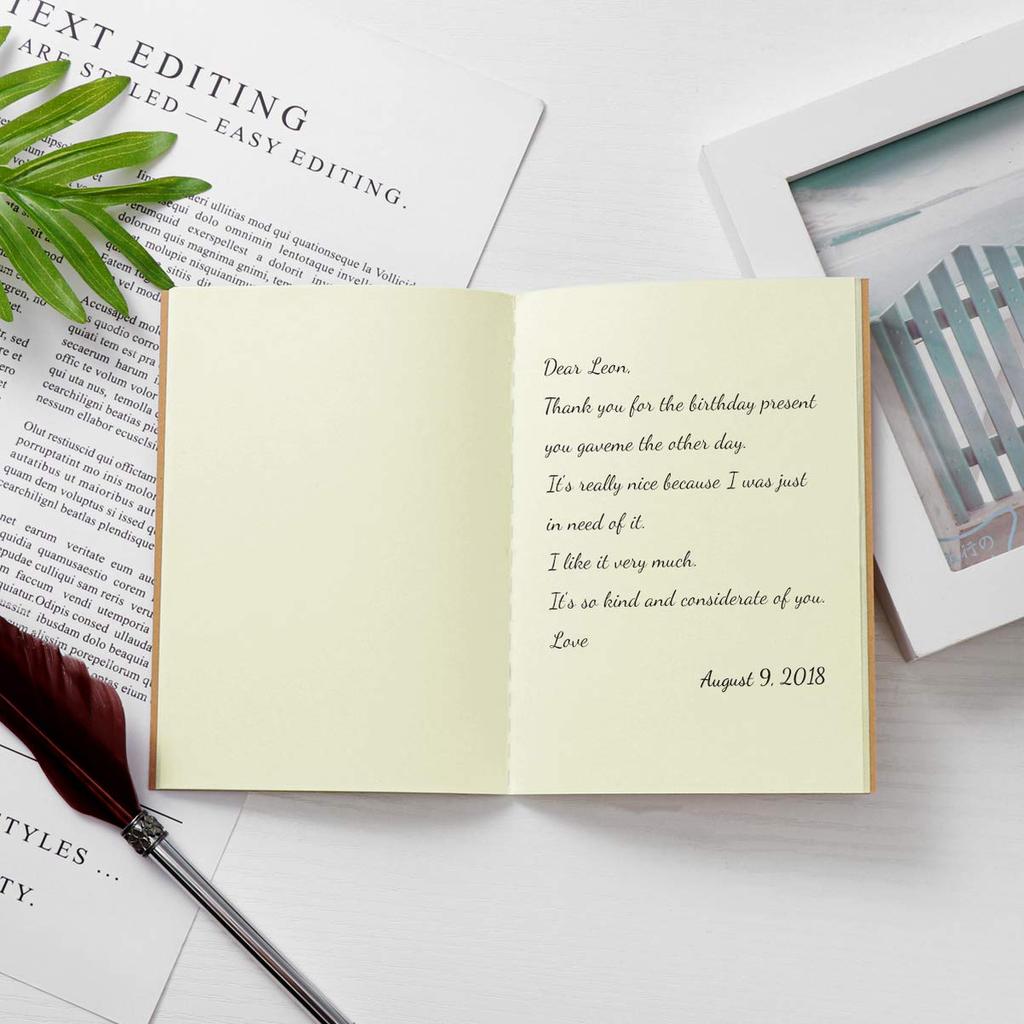 TEXT EDITING
ARE ST LED — EASY EDITING.
deri ullitias mod qui quationseque la Vollicid
sequi dolo omnimin lentotaque invell
dolorum quis magnima gnimi, tem
et molupie nisquianim
Eatem fug sitiis di
vel mod
Accusaped mol
quasi quodio corro
quiati tem est pra
secaerum harum i
offic te volum volor
qui uta nus, temolla
cearchiligni beatias pie
nessum ellabor ecuscisi
Olut restiuscid qui offictam
porruptatint mo inis molor
autatibus ut maioribus aut
quam dem voluptus si issed q
cearchilignl beatlas plendisque
net earum veritate eum aud
quidia quamusaestio corem
epudae culliqui sam reris veru
m faccum vendi utemporia
quiatur.Odipis consed ullauda
ibusdam dolo beaquia
alissim porepellorum qu
optas eium
TYLES ...
TY.
Dear Leon,
Thank you for the birthday present
you gaveme the other day.
It's really nice because I was just
in need of it.
I like it very much.
It's so kind and considerate of you.
Love
August 9, 2018
行の